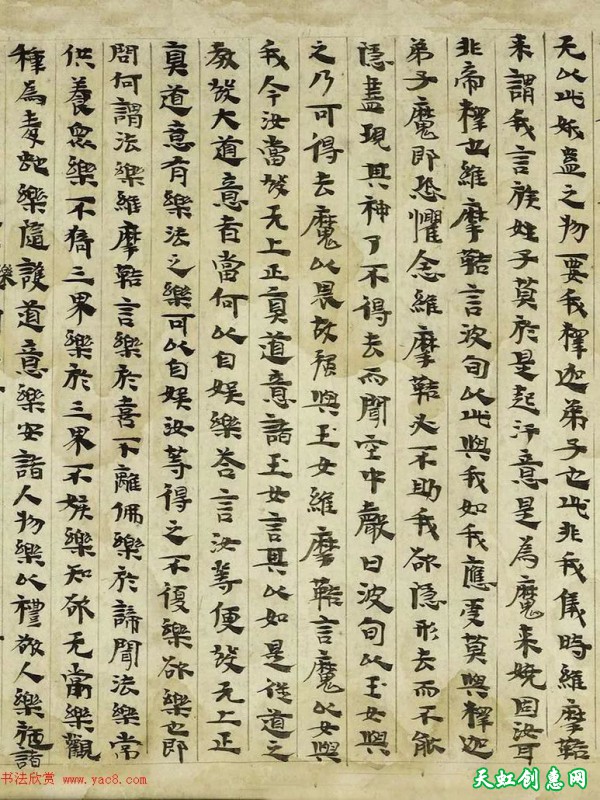 无以此妖蠱之物要我釋迦弟子也此非我儀時維摩鞊
来謂我言族姓子莫於是起汙意是為魔来娆固汝耳
非帝釋也維摩鞊言波旬以此與我如我應受莫與釋迦
弟子魔即恐懼念維摩鞊必不助我欲隱形去而不能
隱盡現其神了不得去而聞空中聲曰波旬以玉女與
之乃可得去魔以畏故強與玉女維摩鞊言魔以女與
我今汝當發无上正真道意諸玉女言其以如是従道之
教發大道意者當何以自娛樂答言汝等便發无上正
真道意有樂法之樂可以自娱汝等得之不復樂欲樂也即
問何謂法樂維摩鞊言樂於喜不離佛樂於諦聞法樂常
供養眾樂不猗三界樂於三界不嫉樂知欲无常樂觀
種為毒蛇樂隨護道意樂安諸人物樂以禮敬人樂施諸
书法欣赏 www.yac8.com
天虹创惠网